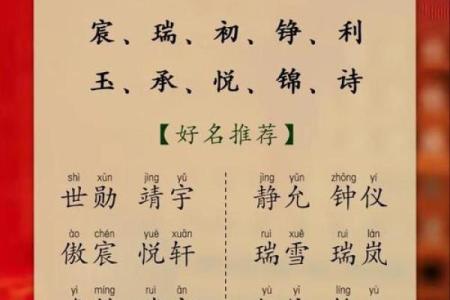 宸、瑞、初、铮、利
玉、承、悦、锦、诗
【好名推荐】
shì xūn jìng yǔ jìng yǔn zhōng yí
世勋 靖宇 静允 钟仪
ào chén yuè xuān ruì xuě ruì lán
傲宸 悦轩 瑞雪 瑞岚
yì míng yù yì